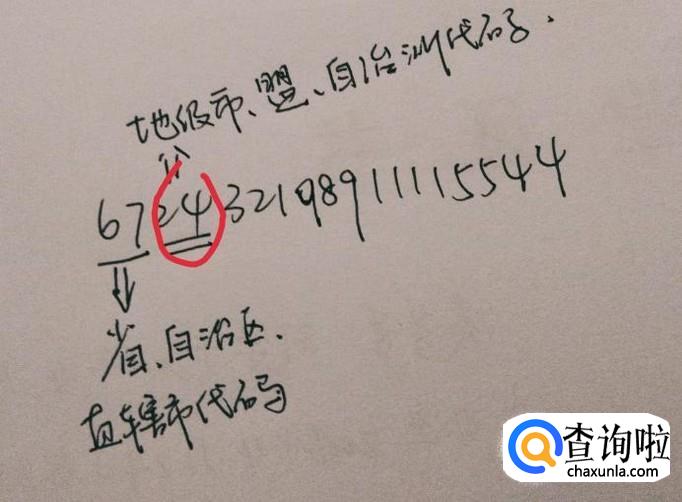 地级市、盟、自治州代码.
672432198911115544
省、自治区、
直辖市代码
查询啦
chaxunla.com